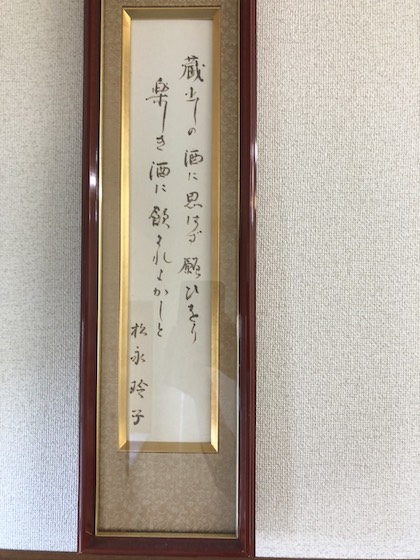 蔵出しの酒に思はず願ひをり
楽しき酒に飲まれよかしと
松永玲子